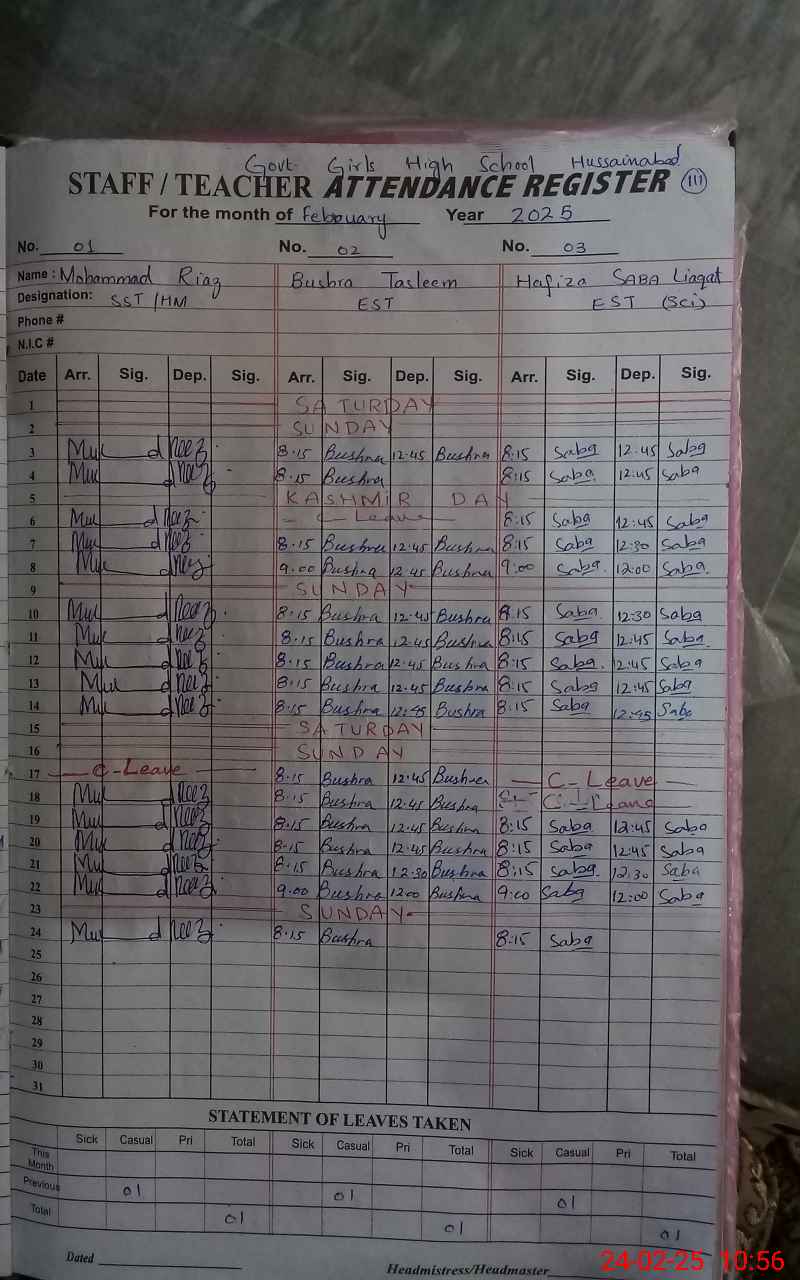 Govt. Girls High School Hussainabad
STAFF / TEACHER ATTENDANCE REGISTER 111
For the month of February Year 2025
No. 01 No. 02 No. 03
Name : Mohammad Riaz Bushra Tasleem Hafiza SABA Liaqat
Designation: SST/HM EST EST (Sci)
Phone #
N.I.C #
Date Arr. Sig. Dep. Sig. Arr. Sig. Dep. Sig. Arr. Sig. Dep. Sig.
1 SATURDAY
2 SUNDAY
3 8·15 Bushra 12·45 Bushra 8:15 Saba 12:45 Saba
4 8·15 Bushra 8:15 Saba 12:45 Saba
5 KASHMIR DAY
6 - C-Leave - 8:15 Saba 12:45 Saba
7 8·15 Bushra 12·45 Bushra 8:15 Saba 12:30 Saba
8 9.00 Bushra 12.45 Bushra 9:00 Saba. 12:00 Saba.
9 SUNDAY
10 8·15 Bushra 12·45 Bushra 8.15 Saba 12:30 Saba
11 8·15 Bushra 12.45 Bushra 8:15 Saba 12:45 Saba.
12 8·15 Bushra 12·45 Bushra 8:15 Saba. 12:45 Saba
13 8·15 Bushra 12·45 Bushra 8:15 Saba 12:45 Saba
14 8·15 Bushra 12:45 Bushra 8.15 Saba 12:45 Saba
15 SATURDAY
16 SUNDAY
17 - C-Leave - 8·15 Bushra 12·45 Bushra - C-Leave -
18 8·15 Bushra 12.45 Bushra C-Leave
19 8·15 Bushra 12.45 Bushra 8:15 Saba 12:45 Saba
20 8·15 Bushra 12.45 Bushra 8:15 Saba 12:45 Saba
21 8·15 Bushra 12.30 Bushra 8:15 Saba. 12.30 Saba
22 9.00 Bushra 1200 Bushra 9:00 Saba 12:00 Saba
23 SUNDAY
24 8·15 Bushra 8:15 Saba
25
26
27
28
29
30
31
STATEMENT OF LEAVES TAKEN
Sick Casual Pri Total Sick Casual Pri Total Sick Casual Pri Total
This Month
Previous 01 01 01
Total 01 01 01
Dated Headmistress/Headmaster
24-02-25 10:56